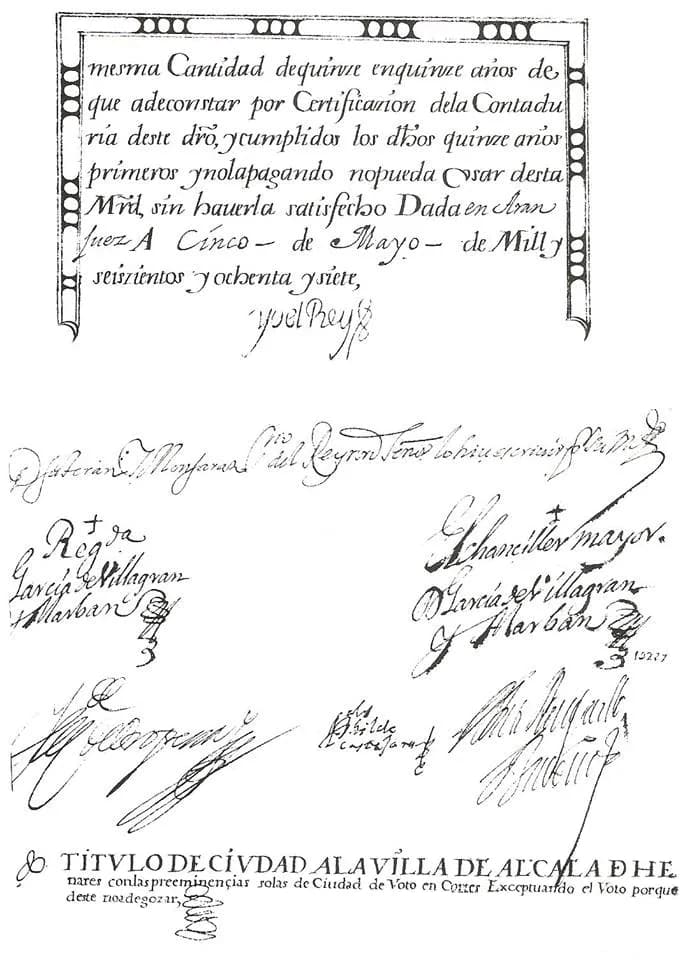 mesma Cantidad dequinze enquinze años de
que adeconstar por Certificazion dela Contadu
ria deste dro, ycumplidos los dhos quinze años
primeros ynolapagando nopueda Usar desta
Mrd, sin hauerla satisfecho Dada en Aran
juez A Cinco - de Mayo - de Mill y
seiszientos y ochenta y siete,
yo el Rey
del Rey nro Señor lo hice escrivir por su mdo
Regda
García de Villagran
y Marban
El chanciller mayor.
D García de Villagran
y Marban
TITVLO DE CIVDAD A LA VILLA DE ALCALA D HE
nares con las preeminençias solas de Ciudad de Voto en Cortes Exceptuando el Voto porque
deste no a de gozar,